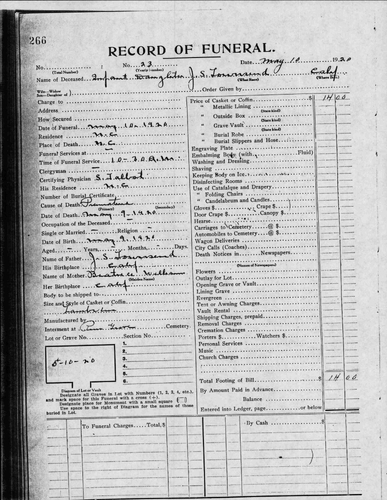 266
RECORD OF FUNERAL.
No. 22 Date, May 10 1920
(Total Number) (Yearly Number)
Name of Deceased Infant Daughter J. S. Townsend
(What Race)
Charge to Order Given by
Address
How Secured
Date of Funeral May 10, 1920
Residence N.C.
Place of Death N.C.
Funeral Services at
Time of Funeral Service 10-30 A.M.
Clergyman
Certifying Physician S. Talbot
His Residence N.C.
Number of Burial Certificate
Cause of Death Premature
Date of Death May 9-1920
Occupation of the Deceased
Single or Married Religion
Date of Birth May 9-1920
Aged Years Months Days
Name of Father J. S. Townsend
His Birthplace
Name of Mother Beatrice Williams
Her Birthplace
Body to be shipped to
Size and Style of Casket or Coffin
Manufactured by
Interment at Cemetery
Lot or Grave No. Section No.
5-10-20
1.
2.
3.
4.
5.
6.
Diagram of Lot or Vault
Designate all Graves in Lot with Numbers (1, 2, 3, 4, etc.),
and mark space for this Funeral with a cross (+).
Designate place for Monument with a small square
Use space to the right of Diagram for the names of those
buried in Lot.
Price of Casket or Coffin 14 00
" Metallic Lining
" Outside Box
" Grave Vault
" Burial Robe
" Burial Slippers and Hose
Engraving Plate
Embalming Body (with Fluid)
Washing and Dressing
Shaving
Keeping Body on Ice
Disinfecting Rooms
Use of Catafalque and Drapery
" Folding Chairs
" Candelabrum and Candles
Gloves $ Crape $
Door Crape $ Canopy $
Hearse
Carriages to Cemetery @ $
Automobiles to Cemetery @ $
Wagon Deliveries
City Calls (Coaches)
Death Notices in Newspapers
Flowers
Outlay for Lot
Opening Grave or Vault
Lining Grave
Evergreen
Tent or Awning Charges
Vault Rental
Shipping Charges, prepaid
Removal Charges
Cremation Charges
Porters $ Watchers $
Personal Services
Music
Church Charges
Total Footing of Bill 14 00
By Amount Paid in Advance
Balance
Entered into Ledger, page or below.
To Funeral Charges Total, $ By Cash $